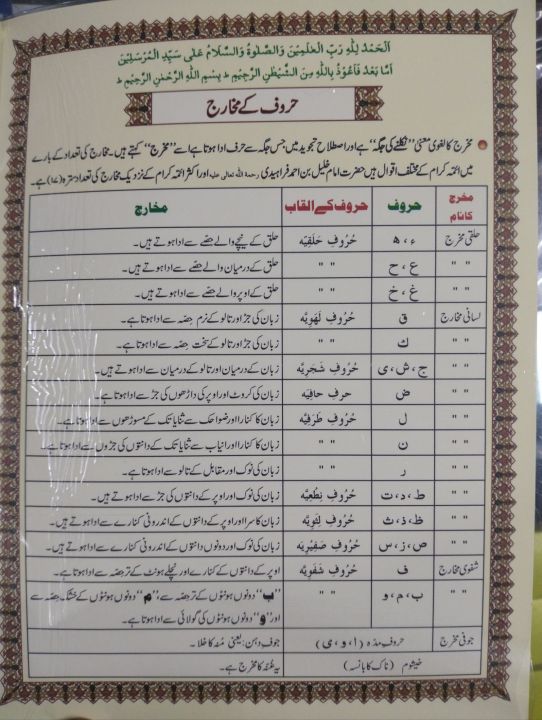 اَلْحَمْدُ لِلّٰهِ رَبِّ الْعٰلَمِيْنَ وَالصَّلٰوةُ وَالسَّلَامُ عَلٰى سَيِّدِ الْمُرْسَلِيْنَ
اَمَّا بَعْدُ فَاَعُوْذُ بِاللّٰهِ مِنَ الشَّيْطٰنِ الرَّجِيْمِ ط بِسْمِ اللّٰهِ الرَّحْمٰنِ الرَّحِيْمِ ط
حروف کے مخارج
مخرج کا لغوی معنیٰ "نکلنے کی جگہ" ہے اور اصطلاحِ تجوید میں جس جگہ سے حرف ادا ہوتا ہے اسے "مخرج" کہتے ہیں۔ مخارج کی تعداد کے بارے
میں ائمہ کرام کے مختلف اقوال ہیں حضرت امام خلیل بن احمد فراہیدی رحمۃ اللہ تعالٰی علیہ اور اکثر ائمہ کرام کے نزدیک مخارج کی تعداد سترہ (۱۷) ہے۔
مخرج کا نام حروف حروف کے القاب مخارج
حلقی مخرج ء ، ھ حُرُوفِ حَلَقِیَّه حلق کے نیچے والے حصّے سے ادا ہوتے ہیں۔
" " ع ، ح " " حلق کے درمیان والے حصّے سے ادا ہوتے ہیں۔
" " غ ، خ " " حلق کے اوپر والے حصّے سے ادا ہوتے ہیں۔
لسانی مخارج ق حُرُوفِ لَهَوِیَّه زبان کی جڑ اور تالو کے نرم حصّہ سے ادا ہوتا ہے۔
" " ك " " زبان کی جڑ اور تالو کے سخت حصّہ سے ادا ہوتا ہے۔
" " ج ، ش ، ی حُرُوفِ شَجَرِیَّه زبان کے درمیان اور تالو کے درمیان سے ادا ہوتے ہیں۔
" " ض حرفِ حافِیَه زبان کی کروٹ اور اوپر کی داڑھوں کی جڑ سے ادا ہوتا ہے۔
" " ل حُرُوفِ طَرَفِیَّه زبان کا کنارا اور ضواحک سے ثنایا تک کے مسوڑھوں سے ادا ہوتا ہے۔
" " ن " " زبان کا کنارا اور انیاب سے ثنایا تک کے دانتوں کی جڑوں سے ادا ہوتا ہے۔
" " ر " " زبان کی نوک اور مقابل کے تالو سے ادا ہوتا ہے۔
" " ط ، د ، ت حُرُوفِ نِطْعِیَّه زبان کی نوک اور اوپر کے دانتوں کی جڑ سے ادا ہوتے ہیں۔
" " ظ ، ذ ، ث حُرُوفِ لِثَوِیَّه زبان کا سرا اور اوپر کے دانتوں کے اندرونی کنارے سے ادا ہوتے ہیں۔
" " ص ، ز ، س حُرُوفِ صَفِیْرِیَه زبان کی نوک اور دونوں دانتوں کے اندرونی کنارے سے ادا ہوتے ہیں۔
شفوی مخارج ف حُرُوفِ شَفَوِیَّه اوپر کے دانتوں کے کنارے اور نچلے ہونٹ کے تر حصّہ سے ادا ہوتا ہے۔
" " ب ، م ، و " " "ب" دونوں ہونٹوں کے تر حصّہ سے، "م" دونوں ہونٹوں کے خشک حصّہ سے
اور "و" دونوں ہونٹوں کی گولائی سے ادا ہوتا ہے۔
جوفی مخرج حروفِ مدّہ (ا ، و ، ی) جوفِ دہن: یعنی مُنہ کا خلا۔
خیشوم (ناک کا بانسہ) یہ غُنّہ کا مخرج ہے۔